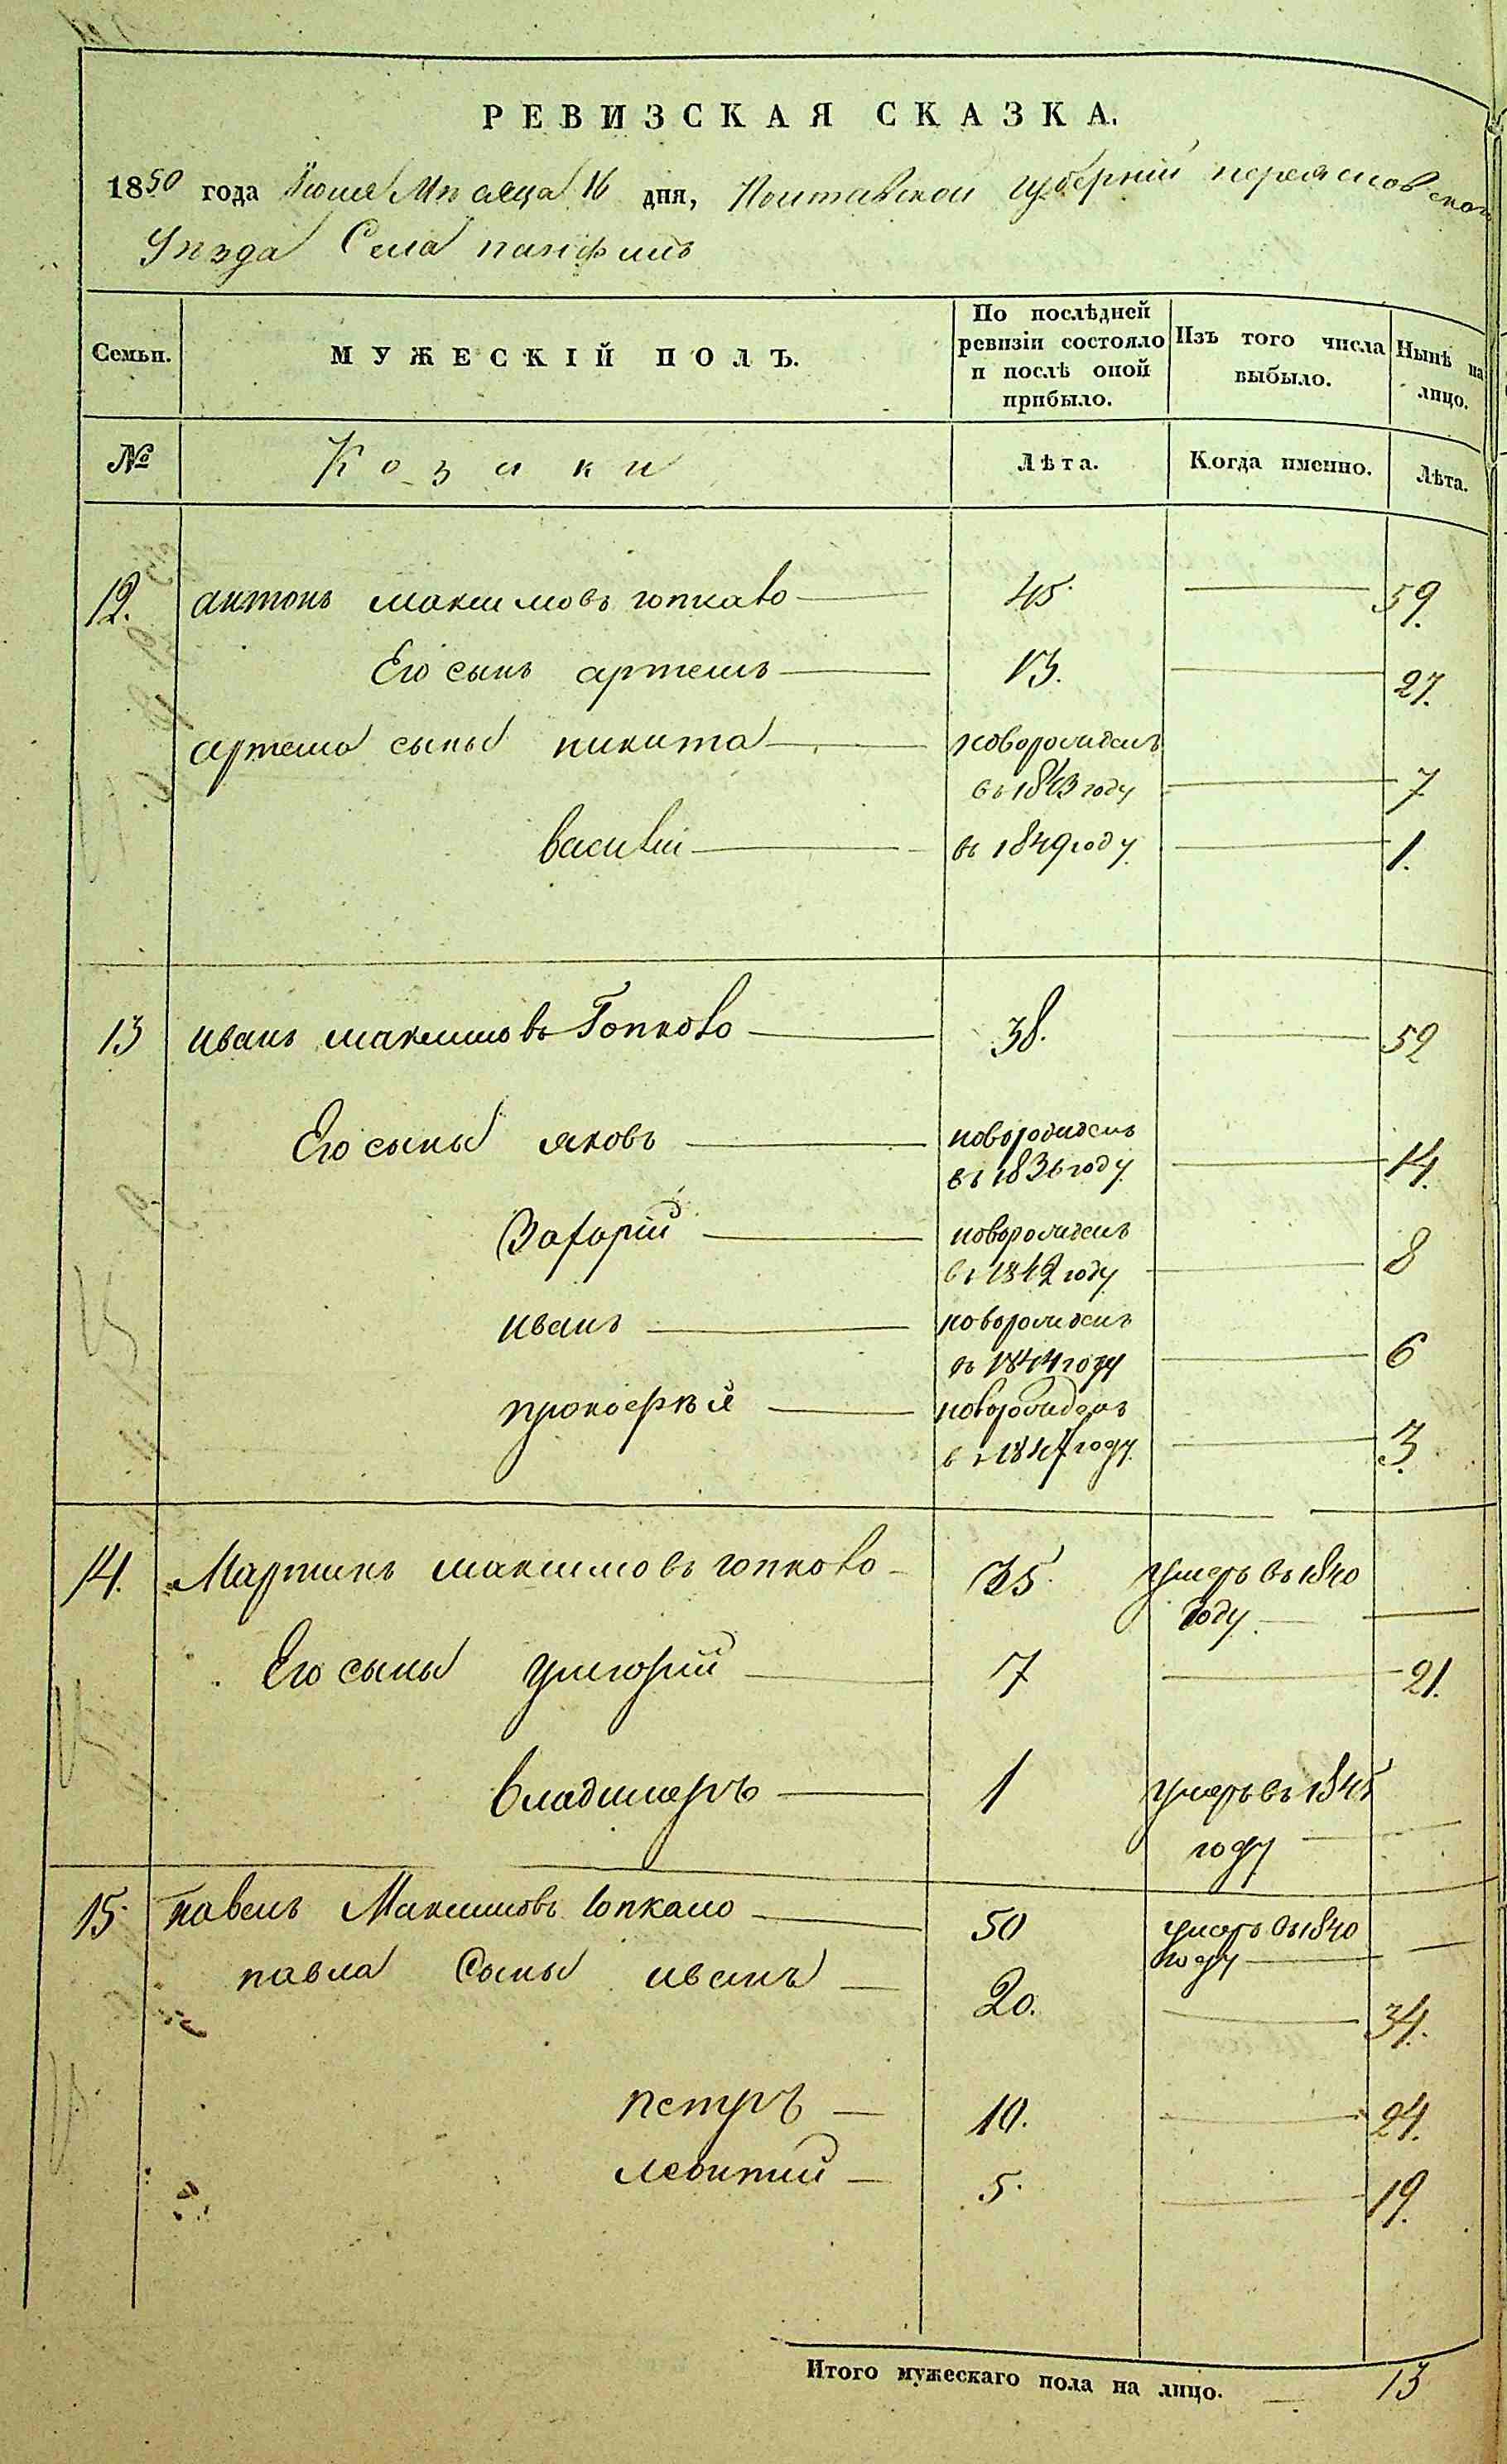 РЕВИЗСКАЯ СКАЗКА.
1850 года Июня Мѣсяца 16 дня, Полтавской губерніи переяслов ской
Уѣзда Села панфилъ
Семьи.
МУЖЕСКІЙ ПОЛЪ.
По послѣдней ревизіи состояло и послѣ оной прибыло.
Изъ того числа выбыло.
Нынѣ на лицо.
№
Козаки
Лѣта.
Когда именно.
Лѣта.
12. антонъ максимовъ гопкало 45. 59.
Его сынъ артемъ 13. 27.
артема сыны никита новорожденъ
въ 1843 году 7
василій въ 1849 году 1.
13 иванъ максимовъ Гопкало 38. 52
Его сыны яковъ новорожденъ
въ 1836 году 14.
Захарій новорожденъ
въ 1842 году 8
иванъ новорожденъ
въ 1844 году 6
прокофѣй новорожденъ
въ 1847 году 3.
14. Мартинъ максимовъ гопкало 35 умеръ въ 1840
году
Его сыны григорій 7 21.
Владимеръ 1 умеръ въ 1845
году
15. павелъ Максимовъ гопкало 50 умеръ въ 1840
году
павла Сыны иванъ 20. 34.
петръ 10. 24.
леонтий 5. 19.
Итого мужескаго пола на лицо. 13